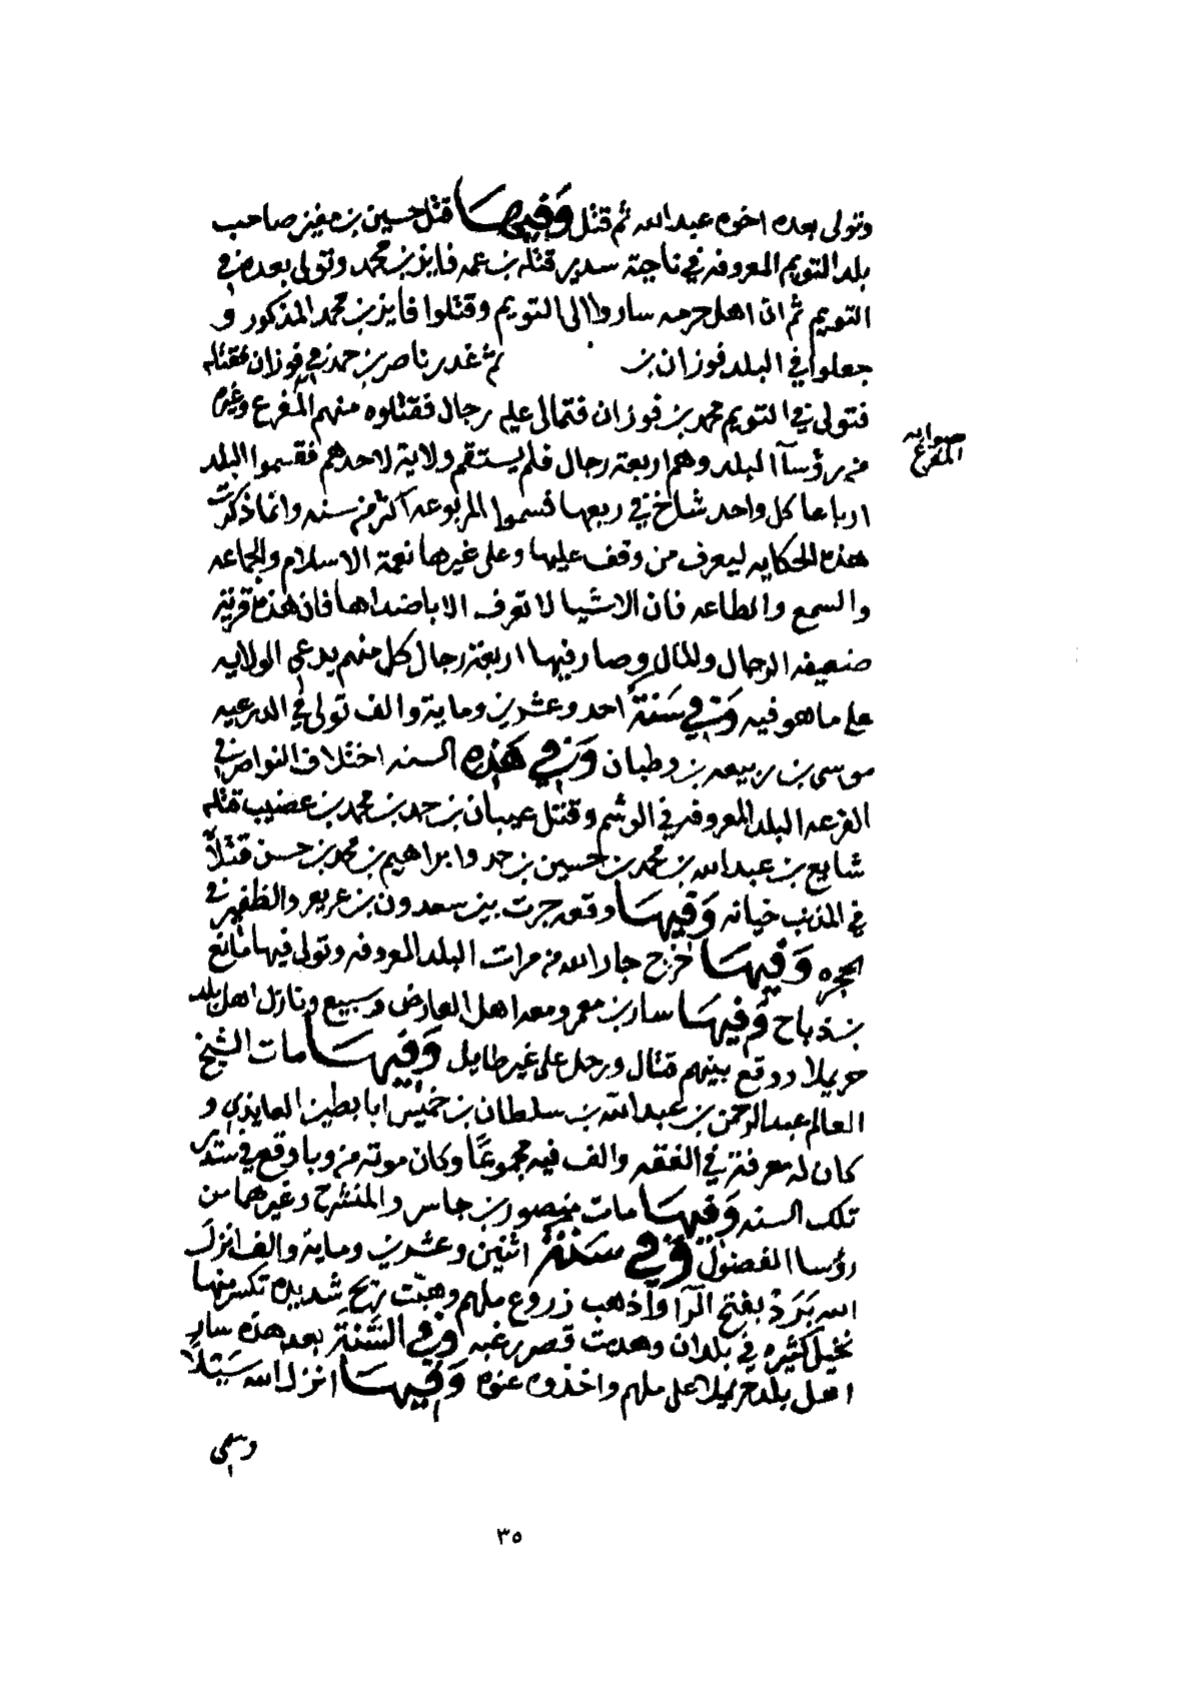 وتولى بعده اخوه عبدالله ثم قتل وَفيهَا قتل حسين بن مفيز صاحب
بلد التويم المعروفه في ناحية سدير قتله بن عمه فايز بن محمد وتولى بعده في
التويم ثم ان اهل حرمه ساروا الى التويم وقتلوا فايز بن محمد المذكور و
جعلوا في البلد فوزان بن ثم غدر ناصر بن حمد في فوزان فقتله
فتولى في التويم محمد بن فوزان فتمالى عليه رجال فقتلوه منهم المفرع وغيره
صوابه
المفرع
من رؤسآ البلد وهم اربعة رجال فلم يستقم ولاية لاحدهم فقسموا البلد
ارباعا كل واحد شاخ في ربعها فسموا المربوعه اكثر من سنه وانما ذكرت
هذه الحكايه ليعرف من وقف عليها وعلى غيرها نعمة الاسلام والجماعه
والسمع والطاعه فان الاشيا لا تعرف الا باضدادها فان هذه قرية
ضعيفه الرجال والمال وصار فيها اربعة رجال كل منهم يدعي الولايه
على ما هو فيه وَفي سَنَة احد وعشرين وماية والف تولى في الدرعيه
موسى بن ربيعه بن وطبان وَفي هَذِهِ السنه اختلاف النواصر في
الفرعه البلد المعروفه في الوشم وقتل عيبان بن حمد بن محمد بن عضيب قتله
شايع بن عبدالله بن محمد بن حسين بن حمد وابراهيم بن محمد بن حسن قتلاً
في المذنب خيانه وَفيهَا وقعه جرت بين سعدون بن عريعر والظفير في
الحجره وَفيهَا اخرج جارالله من مرات البلد المعروفه وتولى فيها مانع
بن ذباح وَفيهَا سار بن معمر ومعه اهل العارض وسبيع ونازل اهل بلد
حريملا ووقع بينهم قتال ورحل على غير طايل وَفيهَا مات الشيخ
العالم عبدالرحمن بن عبدالله بن سلطان بن خميّس ابابطين العايذي و
كان له معرفة في الفقه والف فيه مجموعًا وكان موته من وبا وقع في سدير
تلك السنه وَفيهَا مات منصور بن جاسر والمنشرح وغيرهما من
رؤسا الفضول وَفي سَنَة اثنين وعشرين وماية والف انزل
الله بَرَدْ بفتح الرآ واذهب زروع ملهم وهبّت ريح شديده تكسر منها
نخيل كثيره في بلدان وهدمت قصر رغبه وَفي السَّنَة بعد هذه سار
اهل بلد حريملا على ملهم واخذوه عنوه وَفيهَا انزل الله سَيْلًا
وسمي
٣٥